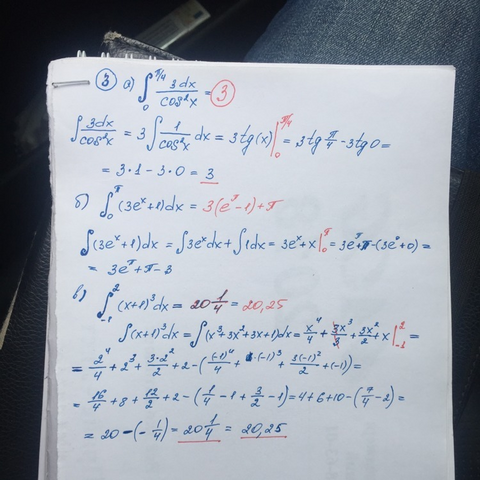 ③ а) ∫₀^π/4 3dx/cos²x = 3
∫ 3dx/cos²x = 3 ∫ 1/cos²x dx = 3 tg(x) |₀^π/4 = 3 tg π/4 - 3 tg 0 =
= 3·1 - 3·0 = 3
б) ∫₀^π (3eˣ+1)dx = 3(e^π-1)+π
∫(3eˣ+1)dx = ∫3eˣdx + ∫1dx = 3eˣ+x |₀^π = 3e^π+π-(3e⁰+0) =
= 3e^π+π-3
в) ∫₋₁² (x+1)³dx = 20 1/4 = 20,25
∫(x+1)³dx = ∫(x³+3x²+3x+1)dx = x⁴/4 + 3x³/3 + 3x²/2 + x |₋₁² =
= 2⁴/4 + 2³ + 3·2²/2 + 2 - ((-1)⁴/4 + (-1)³ + 3(-1)²/2 + (-1)) =
= 16/4 + 8 + 12/2 + 2 - (1/4 - 1 + 3/2 - 1) = 4+6+10-(7/4-2) =
= 20-(-1/4) = 20 1/4 = 20,25